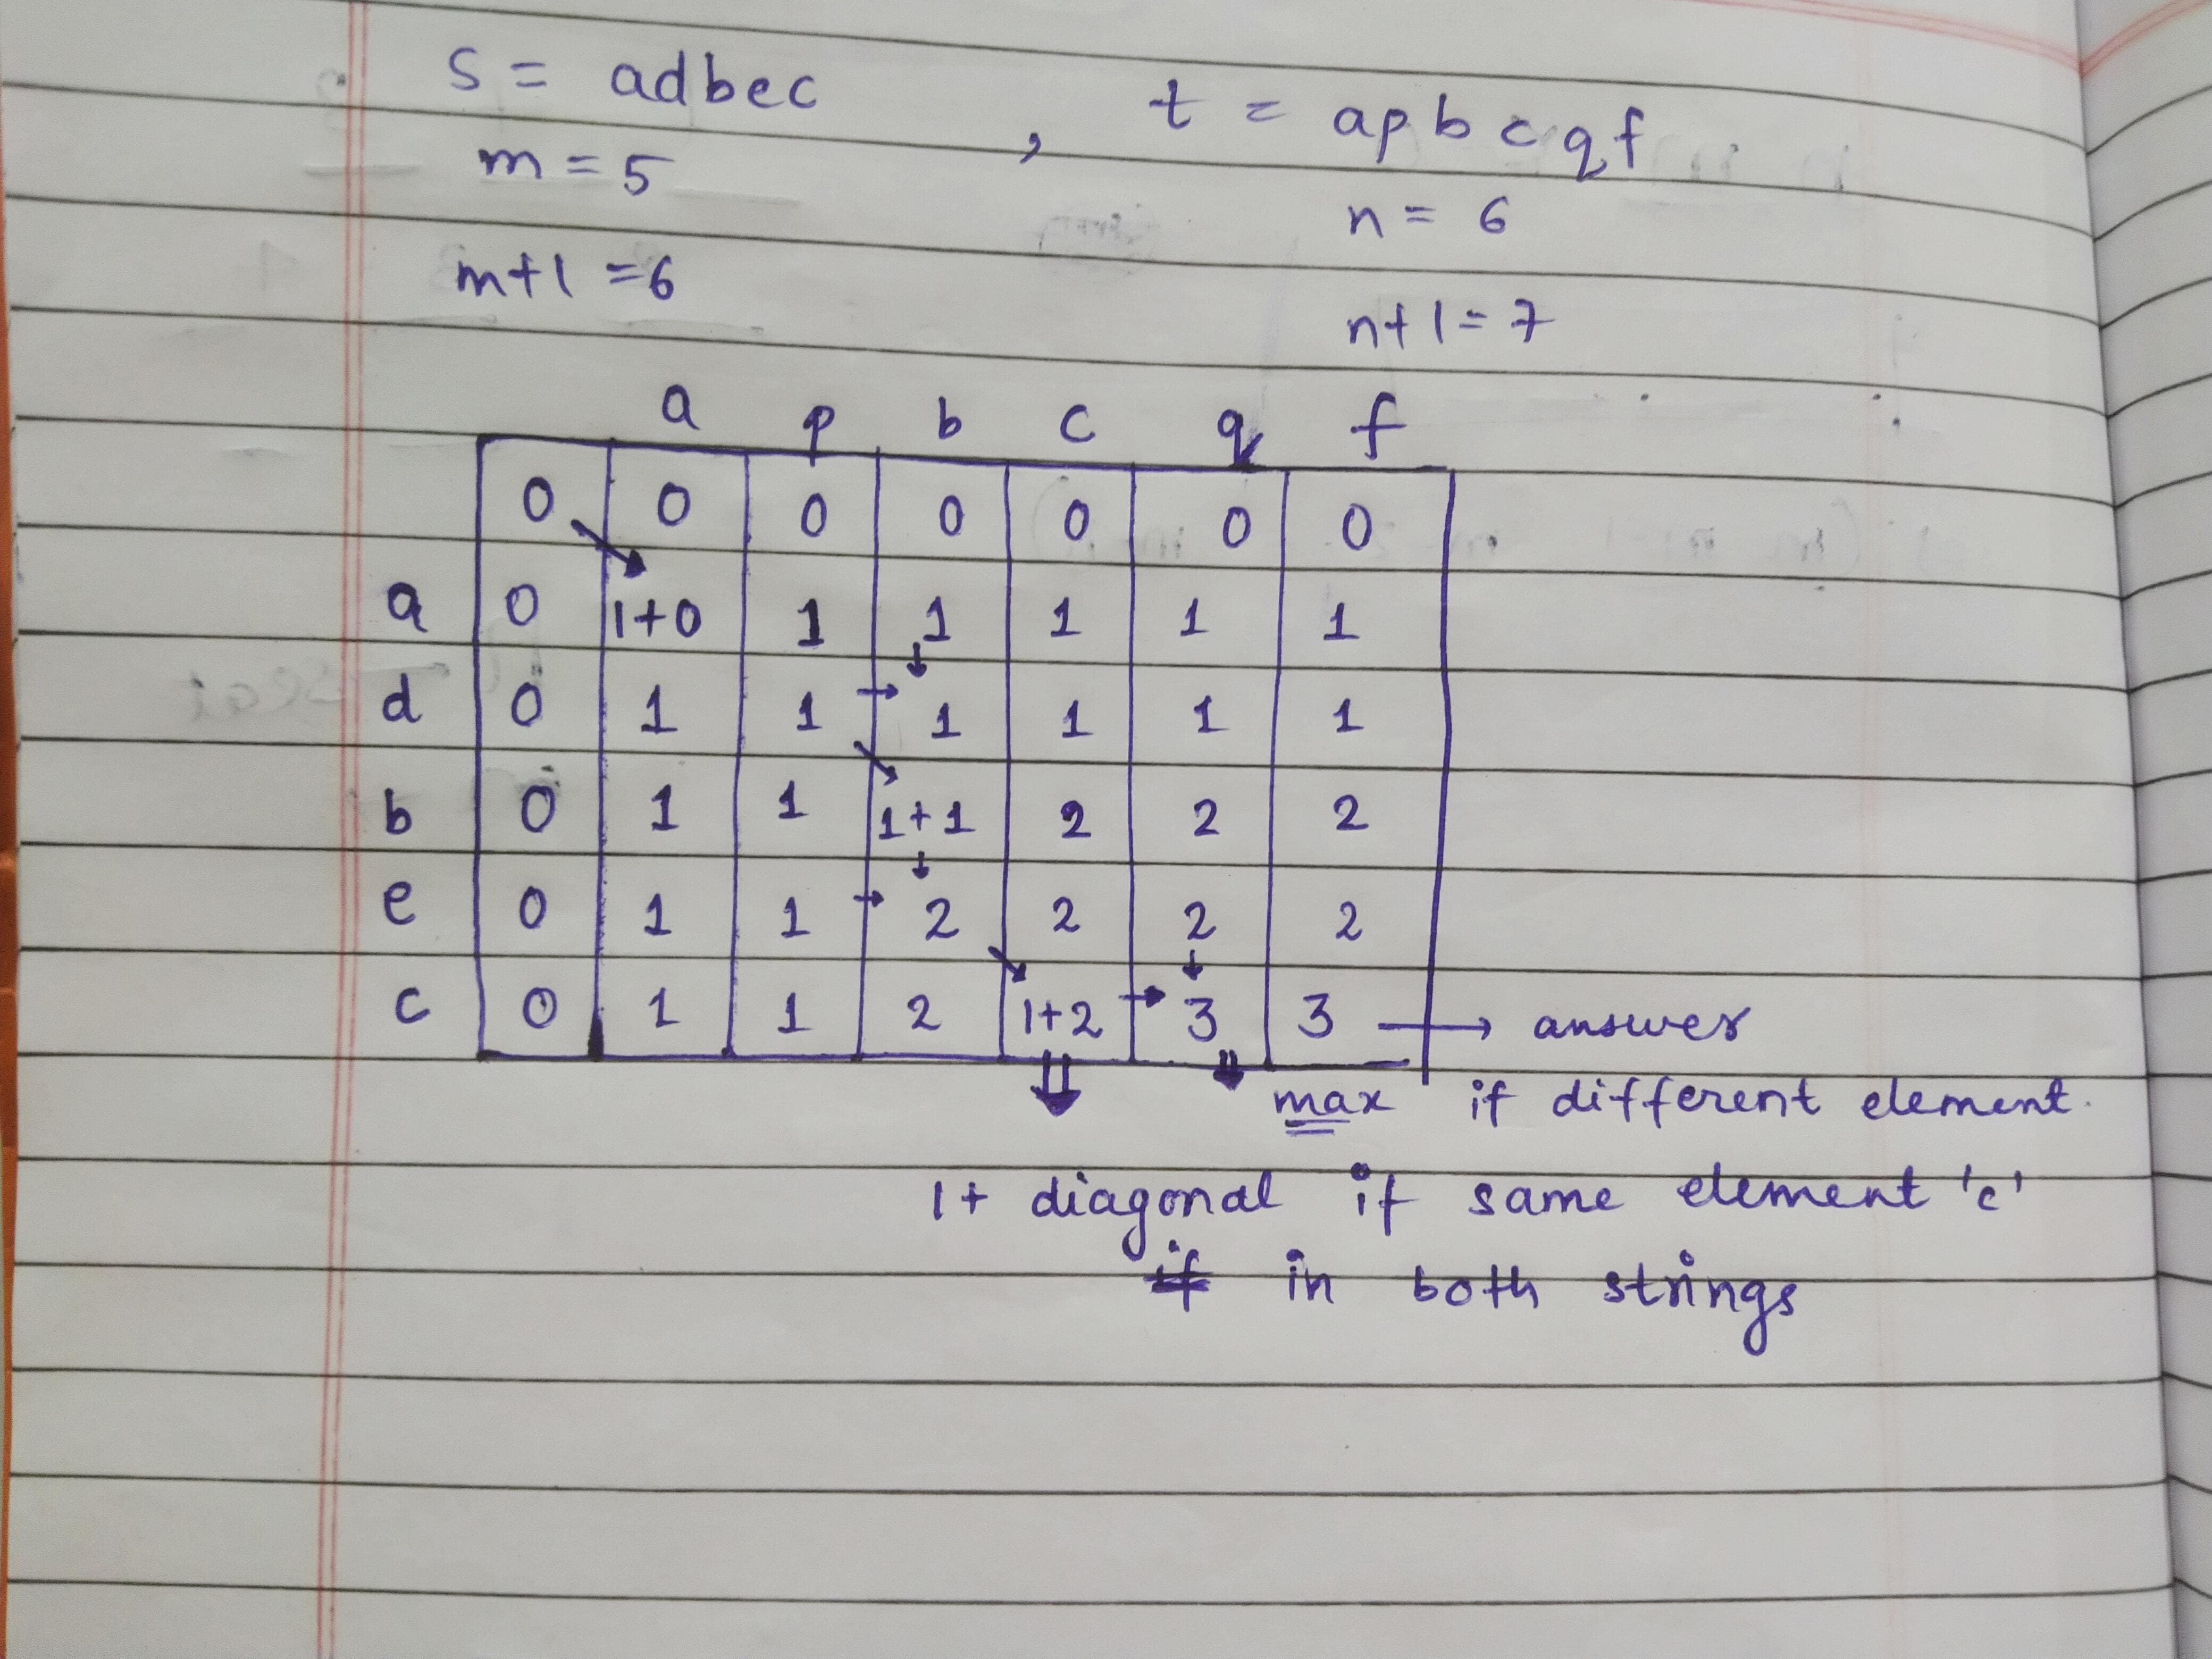 s = adbec , t = apbcqf
m = 5 n = 6
m+1 = 6 n+1 = 7
a p b c q f
0 0 0 0 0 0 0
a 0 1+0 1 1 1 1 1
d 0 1 1 1 1 1 1
b 0 1 1 1+1 2 2 2
e 0 1 1 2 2 2 2
c 0 1 1 2 1+2 3 3 → answer
max if different element.
1+ diagonal if same element 'c'
if in both strings